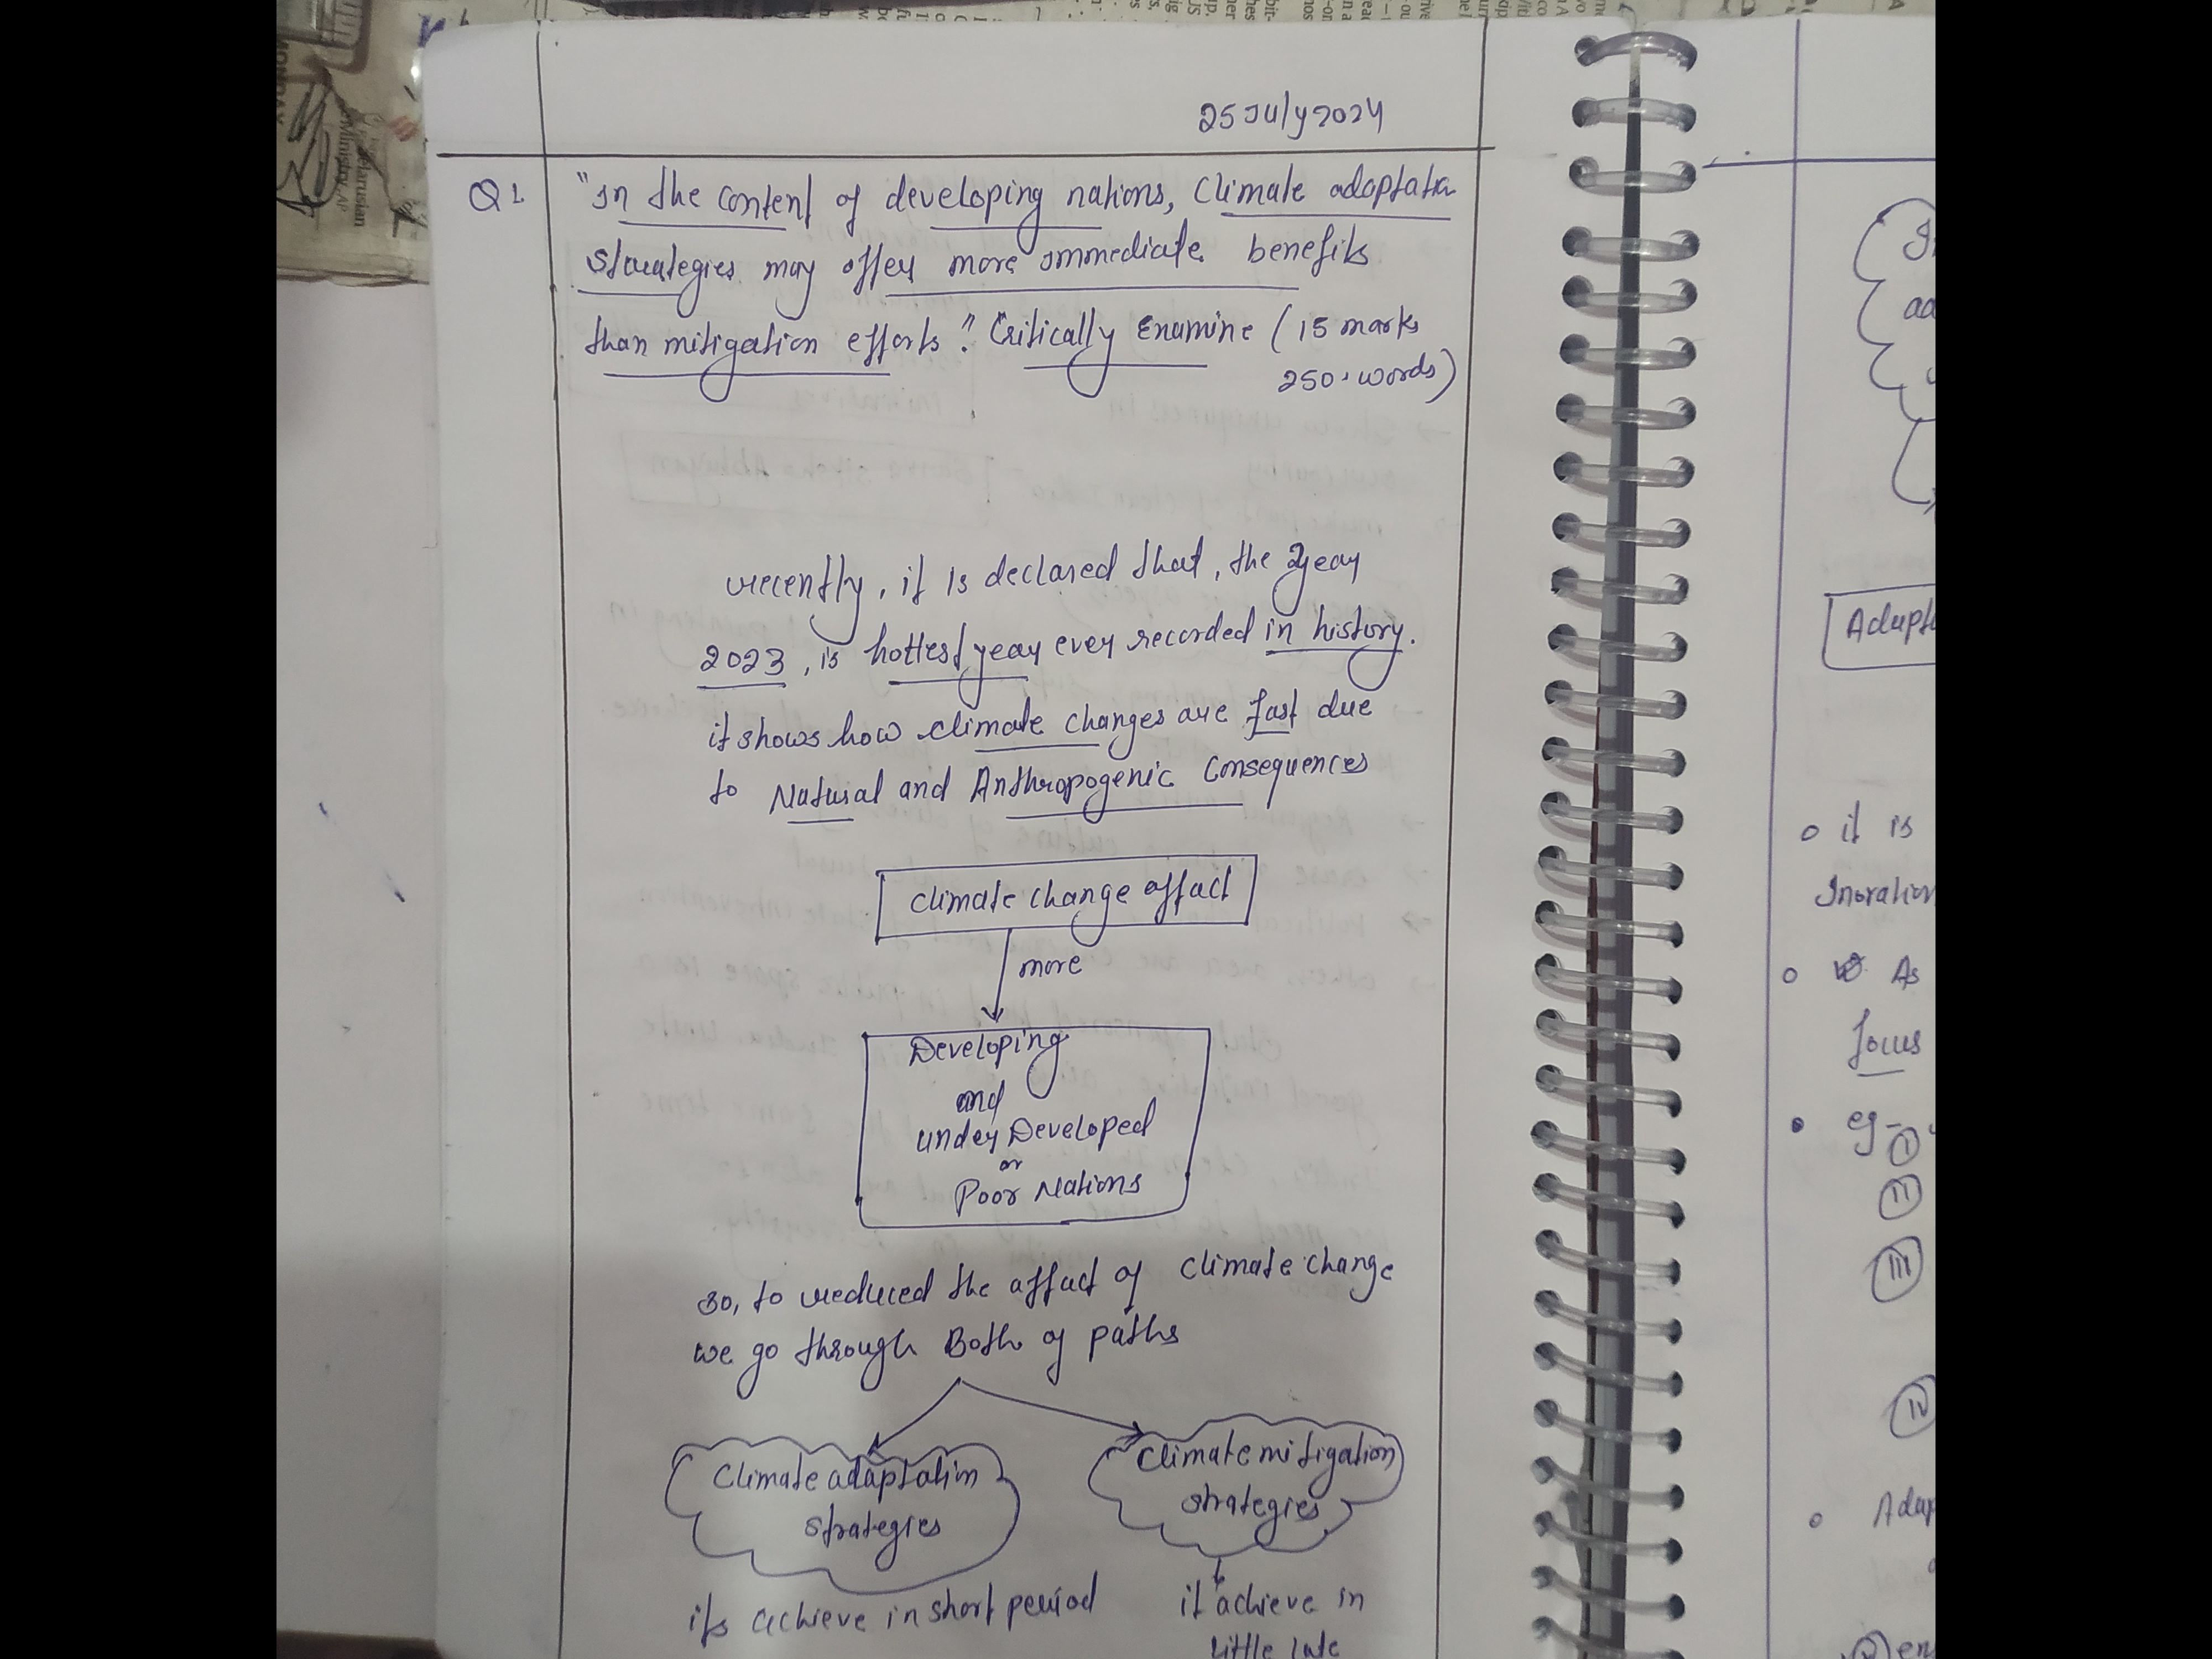 25 July 2024
Q1. "In the content of developing nations, Climate adaptation
strategies may offer more immediate benefits
than mitigation efforts". Critically Examine (15 marks
250 words)
recently, it is declared that, the year
2023, is hottest year ever recorded in history.
it shows how climate changes are fast due
to Natural and Anthropogenic Consequences
Climate change affact
more
Developing
and
under Developed
or
Poor Nations
so, to reduced the affact of climate change
we go through Both of paths
Climate adaptation
strategies
Climate mitigation
strategies
its achieve in short period
it achieve in
little late
Adapt
it is
As
focus
eg-
I
II
III
IV
Adap